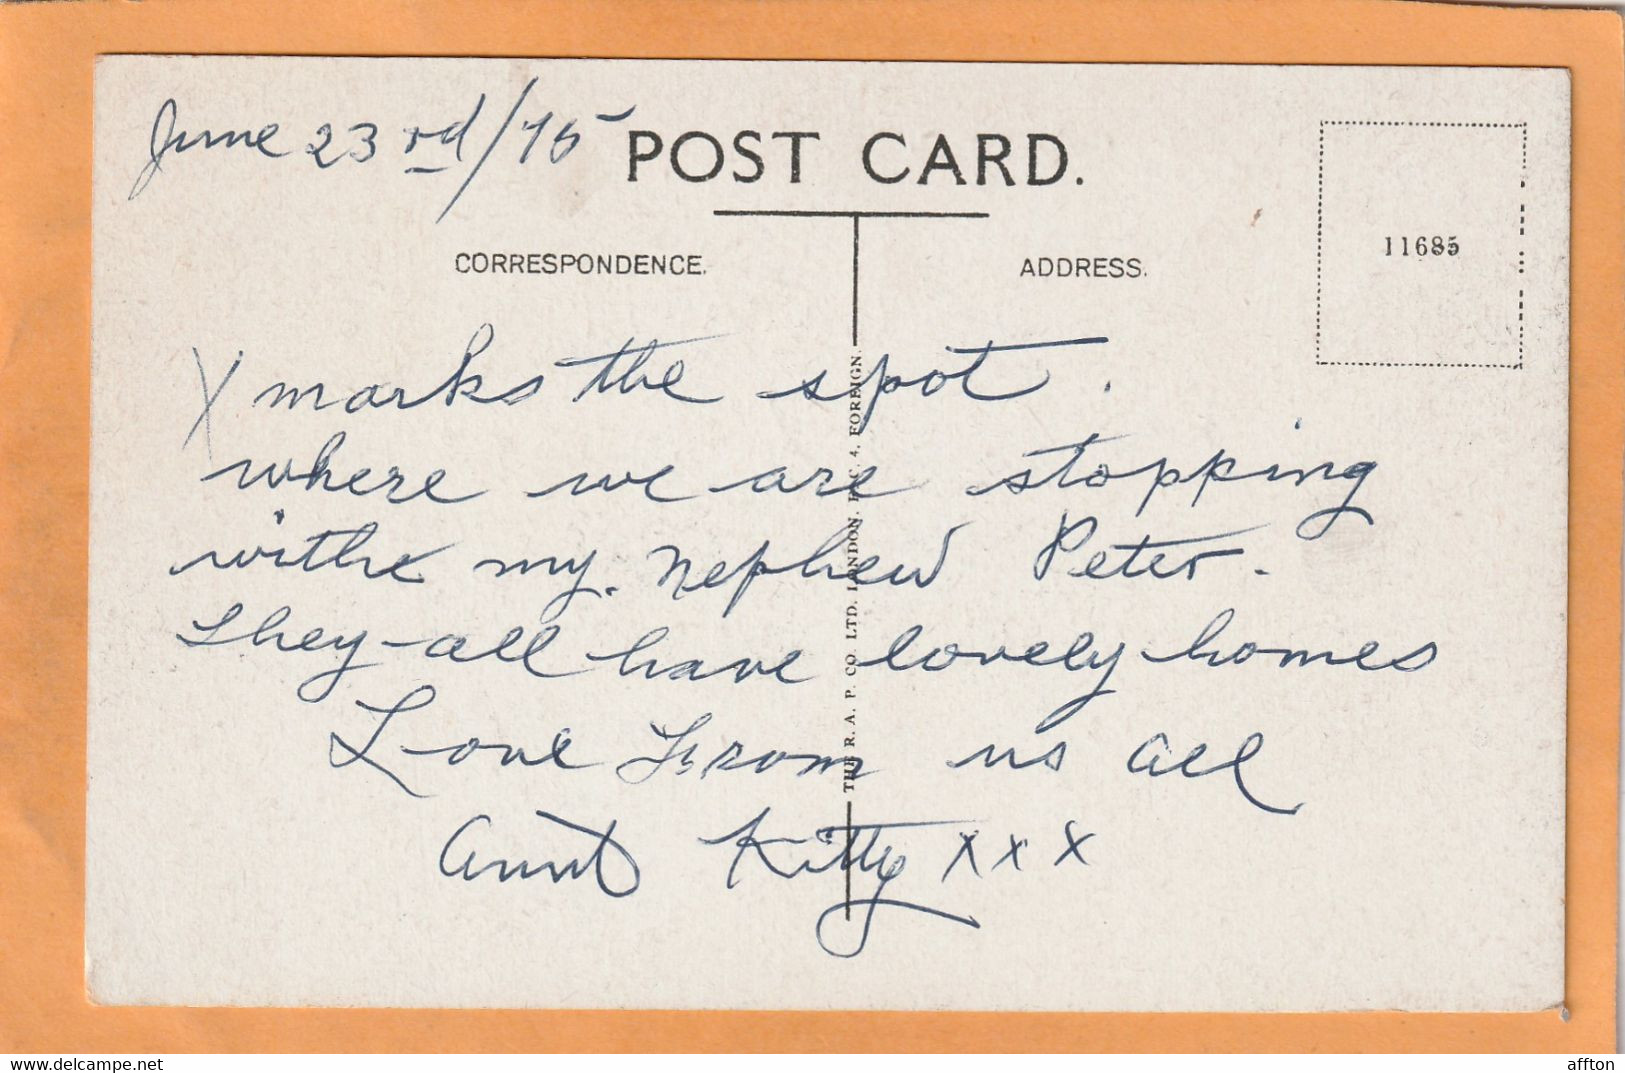 June 23rd/75
POST CARD.
CORRESPONDENCE.
ADDRESS.
11685
X marks the spot.
where we are stopping
withe my. nephew Peter.
They all have lovely homes
Love From us all
Aunt Kitty xxx
THE R. A. P. CO. LTD. LONDON. E.C. 4. FOREIGN.
delcampe.net
affton